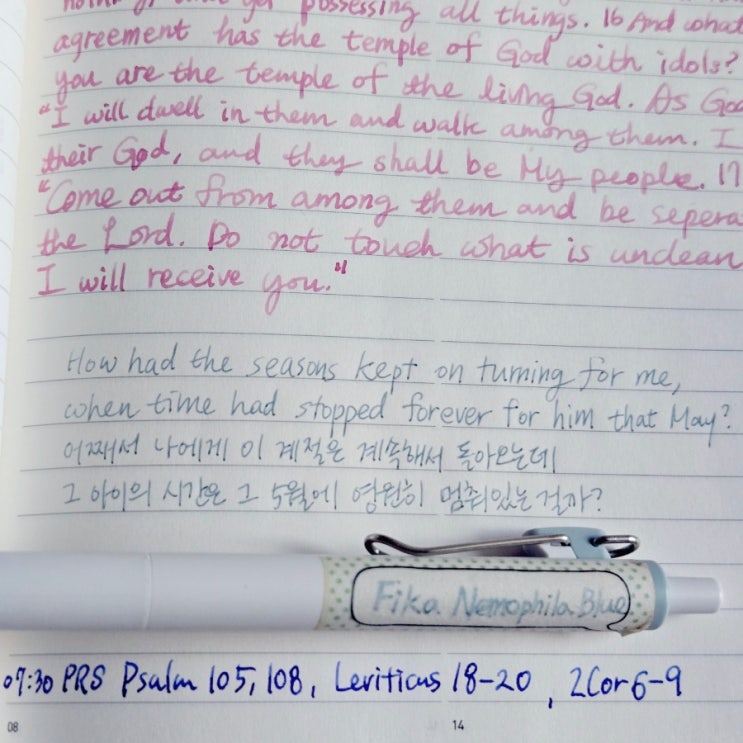 possessing all things. 16 And what
agreement has the temple of God with idols?
you are the temple of the living God. As God
"I will dwell in them and walk among them. I
their God, and they shall be My people. 17
"Come out from among them and be sepera
the Lord. Do not touch what is unclean
I will receive you."
How had the seasons kept on turning for me,
when time had stopped forever for him that May?
어째서 나에게 이 계절은 계속해서 돌아오는데
그 아이의 시간은 그 5월에 영원히 멈춰있는 걸까?
Fika Nemophila Blue
07:30 PRS Psalm 105, 108, Leviticus 18-20, 2Cor 6-9
08 14